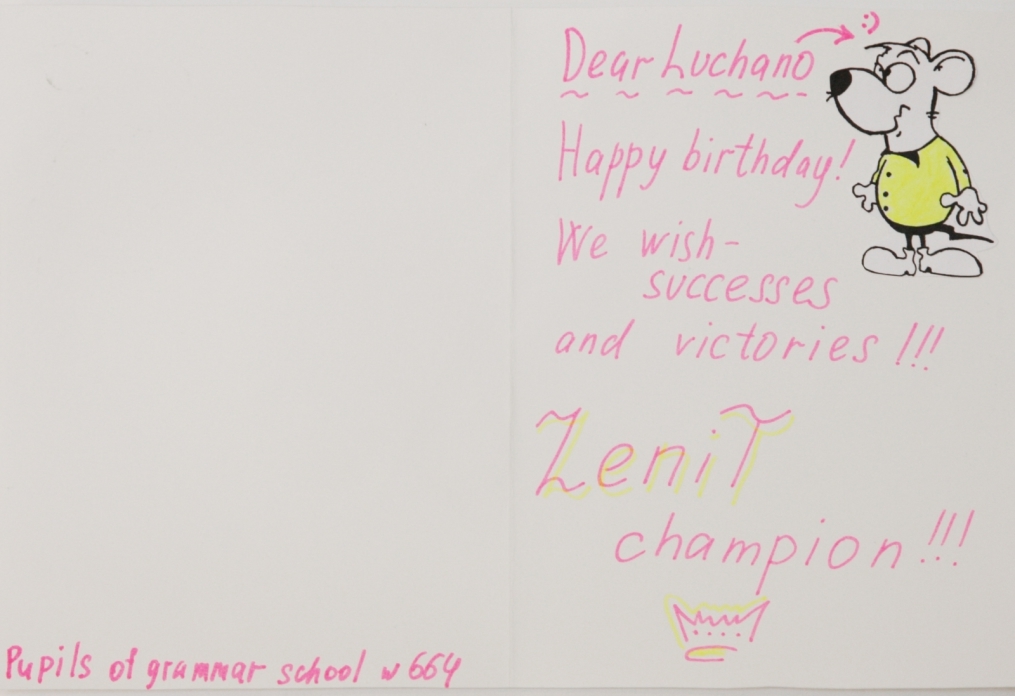 Dear Luchano :)
Happy birthday!
We wish -
successes
and victories !!!
ZeniT
champion !!!
Pupils of grammar school № 664